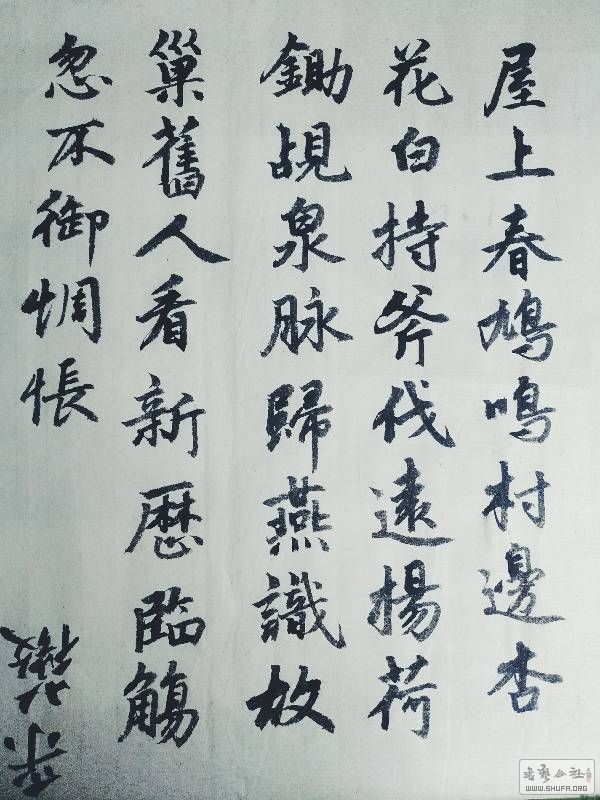 屋上春鳩鳴村邊杏
花白持斧伐遠揚荷
鋤覘泉脉歸燕識故
巢舊人看新歷臨觴
忽不御惆悵
書藝公社
WWW.SHUFA.ORG